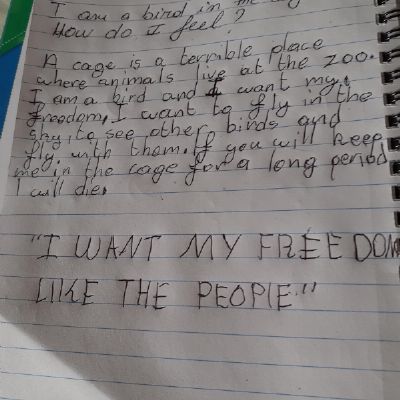 I am a bird in the cag
How do I feel?
A cage is a terrible place
where animals live at the zoo.
I am a bird and I want my
freedom, I want to fly in the
sky, to see other birds and
fly, with them. If you will keep
me in the cage for a long period
I will die.
"I WANT MY FREEDOM
LIKE THE PEOPLE."